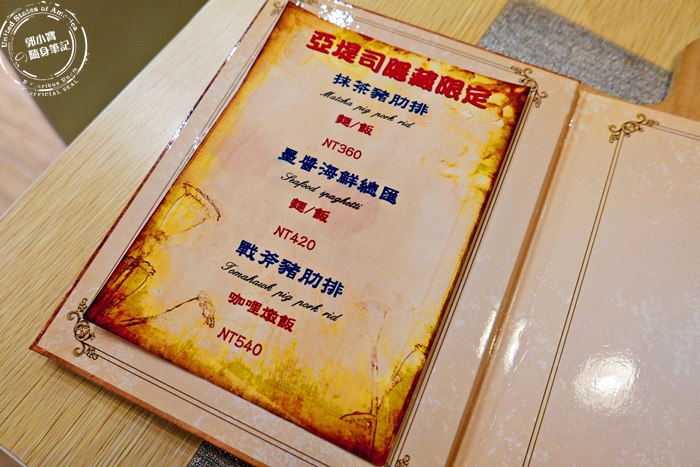 United States of America
郭小寶
隨身筆記
E Pluribus Unum
OFFICIAL SEAL
亞堤司隱藏限定
抹茶豬肋排
Matcha pig pork rid
麵/飯
NT360
墨醬海鮮總匯
Seafood spaghetti
麵/飯
NT420
戰斧豬肋排
Tomahawk pig pork rid
咖哩燉飯
NT540